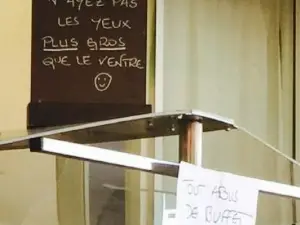 N'AYEZ PAS
LES YEUX
PLUS GROS
QUE LE VENTRE
TOUT ABUS
DE BUFFET